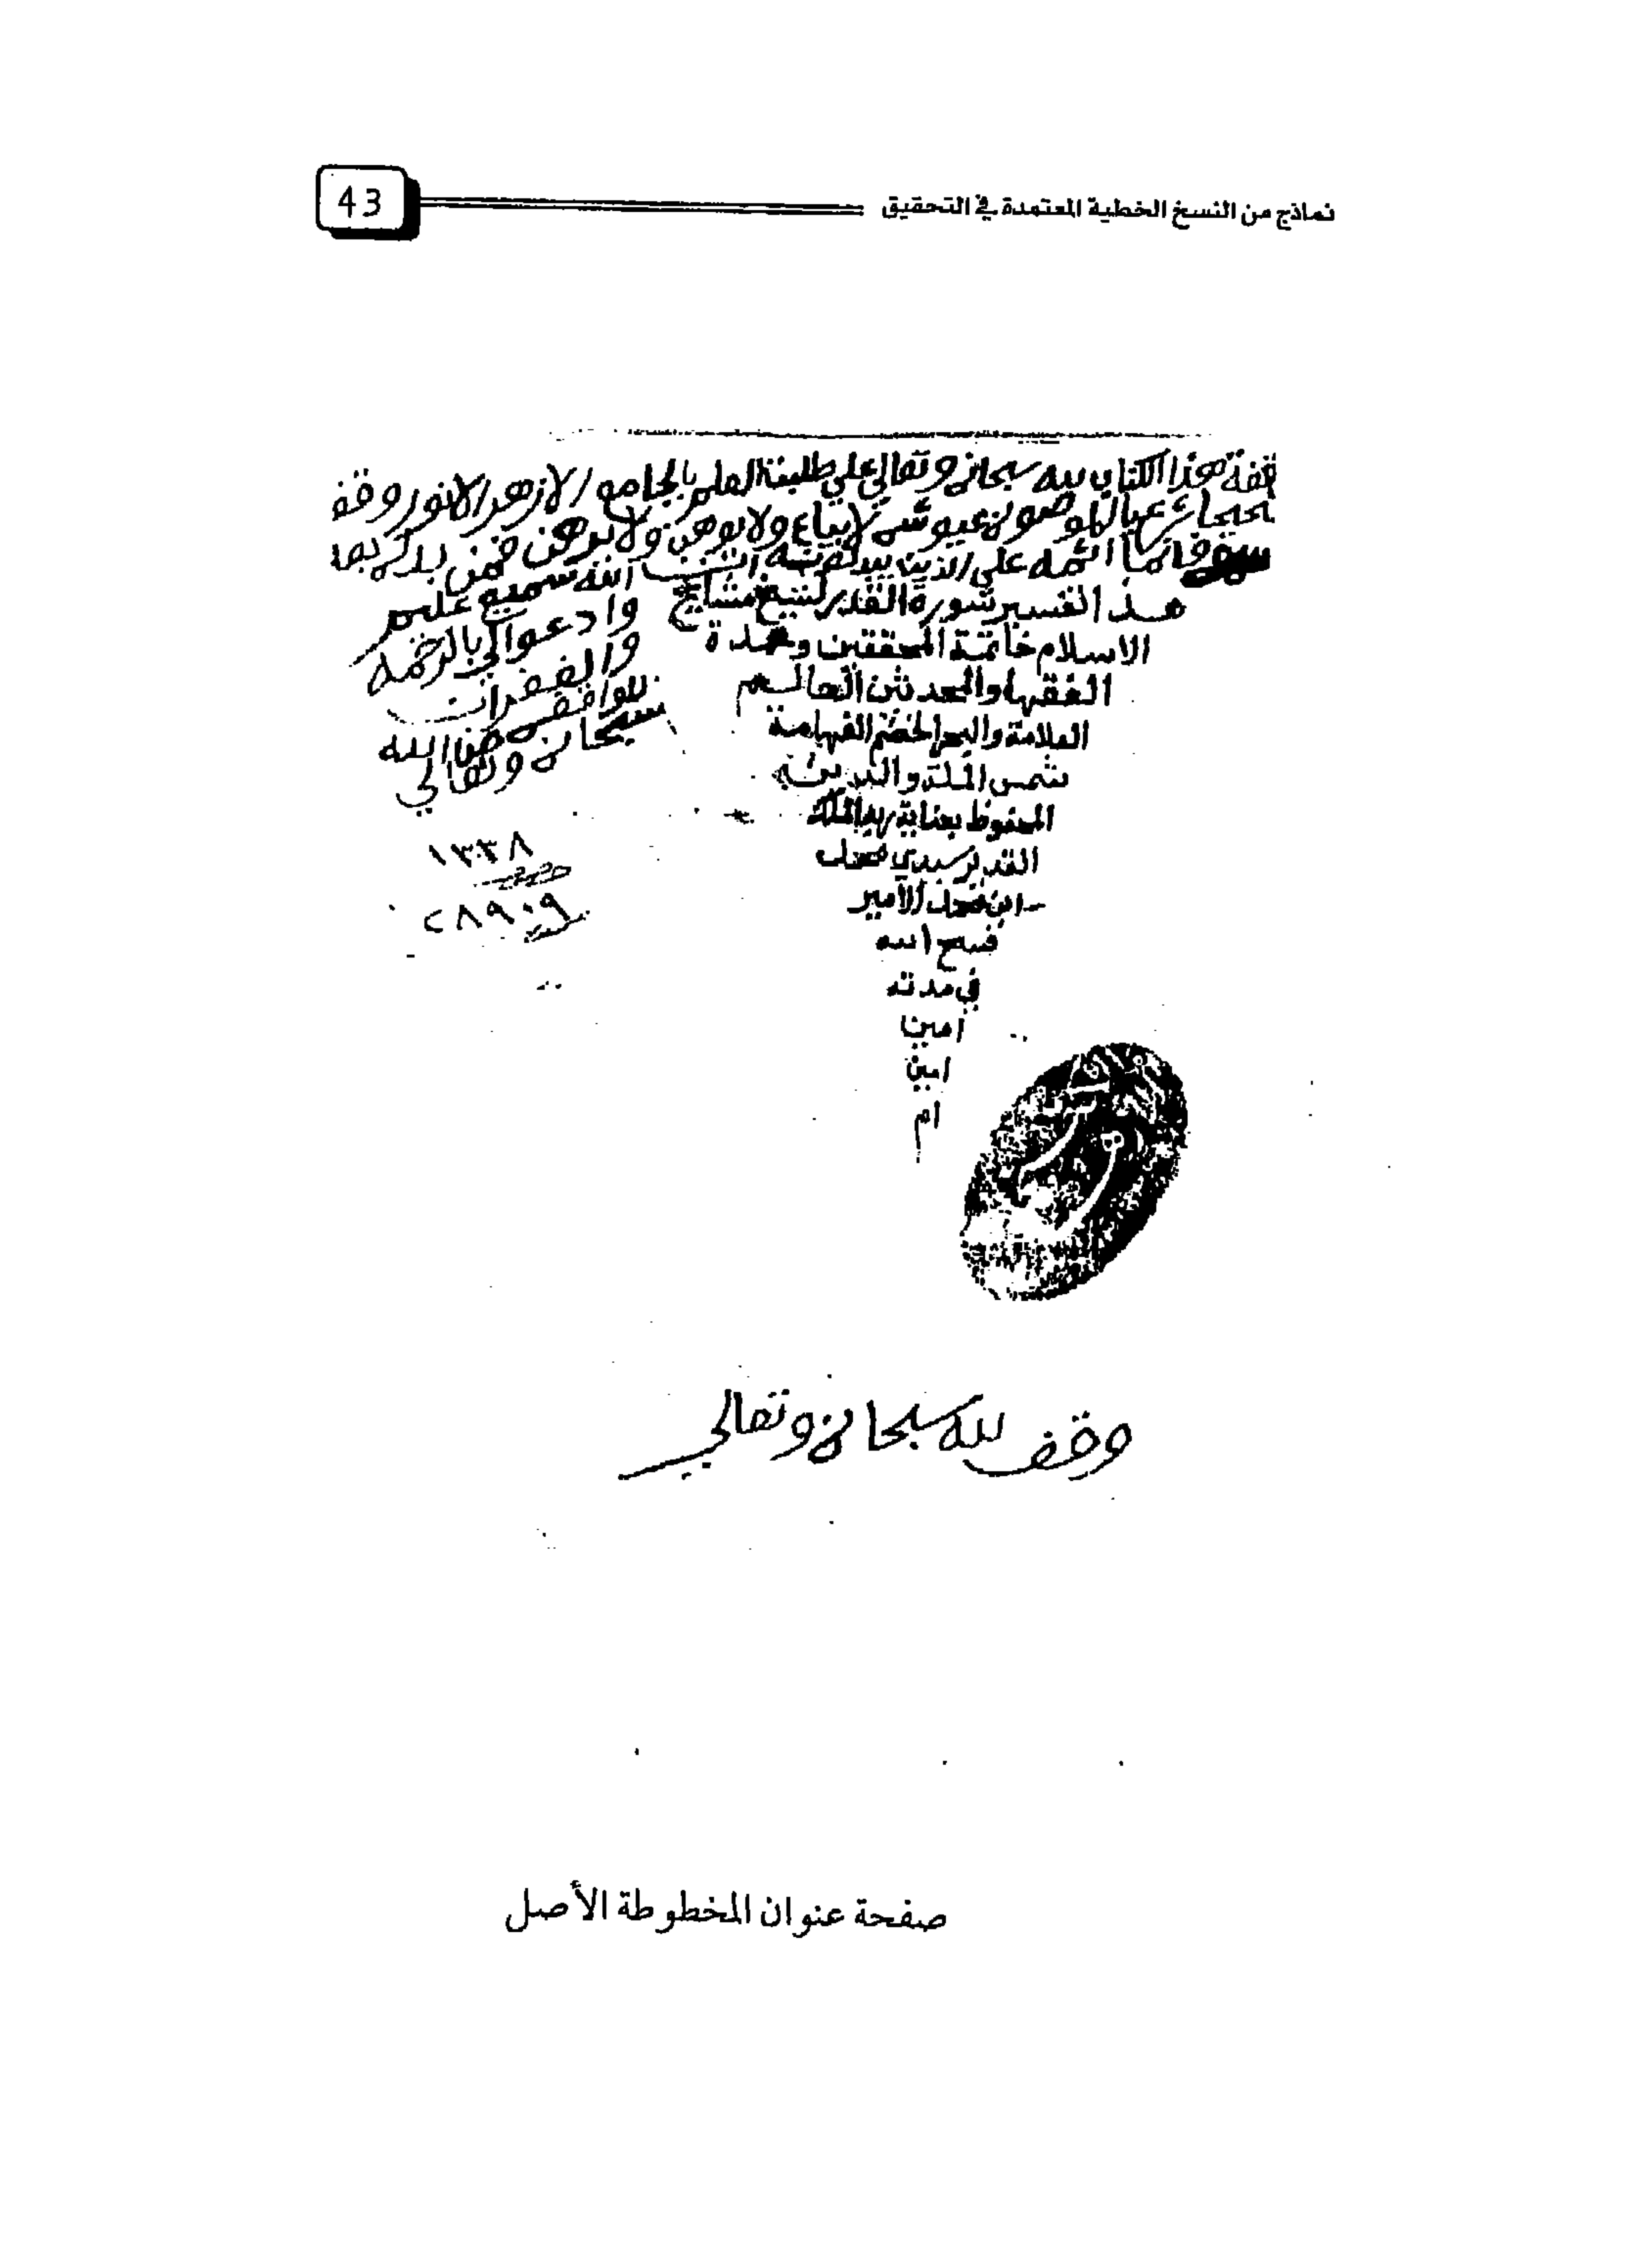 نماذج من النسخ الخطية المعتمدة في التحقيق
43
هذا الكتاب لله سبحانه وتعالى على طلبة العلم بالجامع الازهر الانور وقفا
صحيحا شرعيا لا يباع ولا يوهب ولا يرهن فمن بدله بعد
سمعه فانما اثمه على الذين يبدلونه ان الله سميع عليم
وادعوا لي بالرحمه
والغفران
للواقف من الله
سبحانه وتعالي
هذا تفسير سورة القدر لشيخ مشايخ
الاسلام خاتمة المحققين وعمدة
الفقها والمحدثين العالم
العلامة والبحر الخضم الفهامة
شمس الملة والدين
المحفوظ بعناية ربه الملك
القدير سيدي محمد
ابن محمد الامير
فسح الله
في مدته
امين
امين
ام
١٣٣٨
٢٨٩٠٩
وقف لله سبحانه وتعالي
صفحة عنوان المخطوطة الأصل